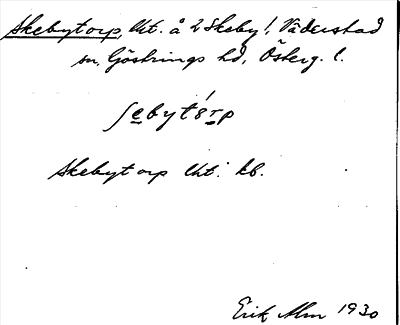 Skebytorp, lht. å 2 Skeby!, Väderstad
sn, Göstrings hd, Österg. l.
ʃebytɵ́rp
Skebytorp lht. kb.
Erik Alm 1930